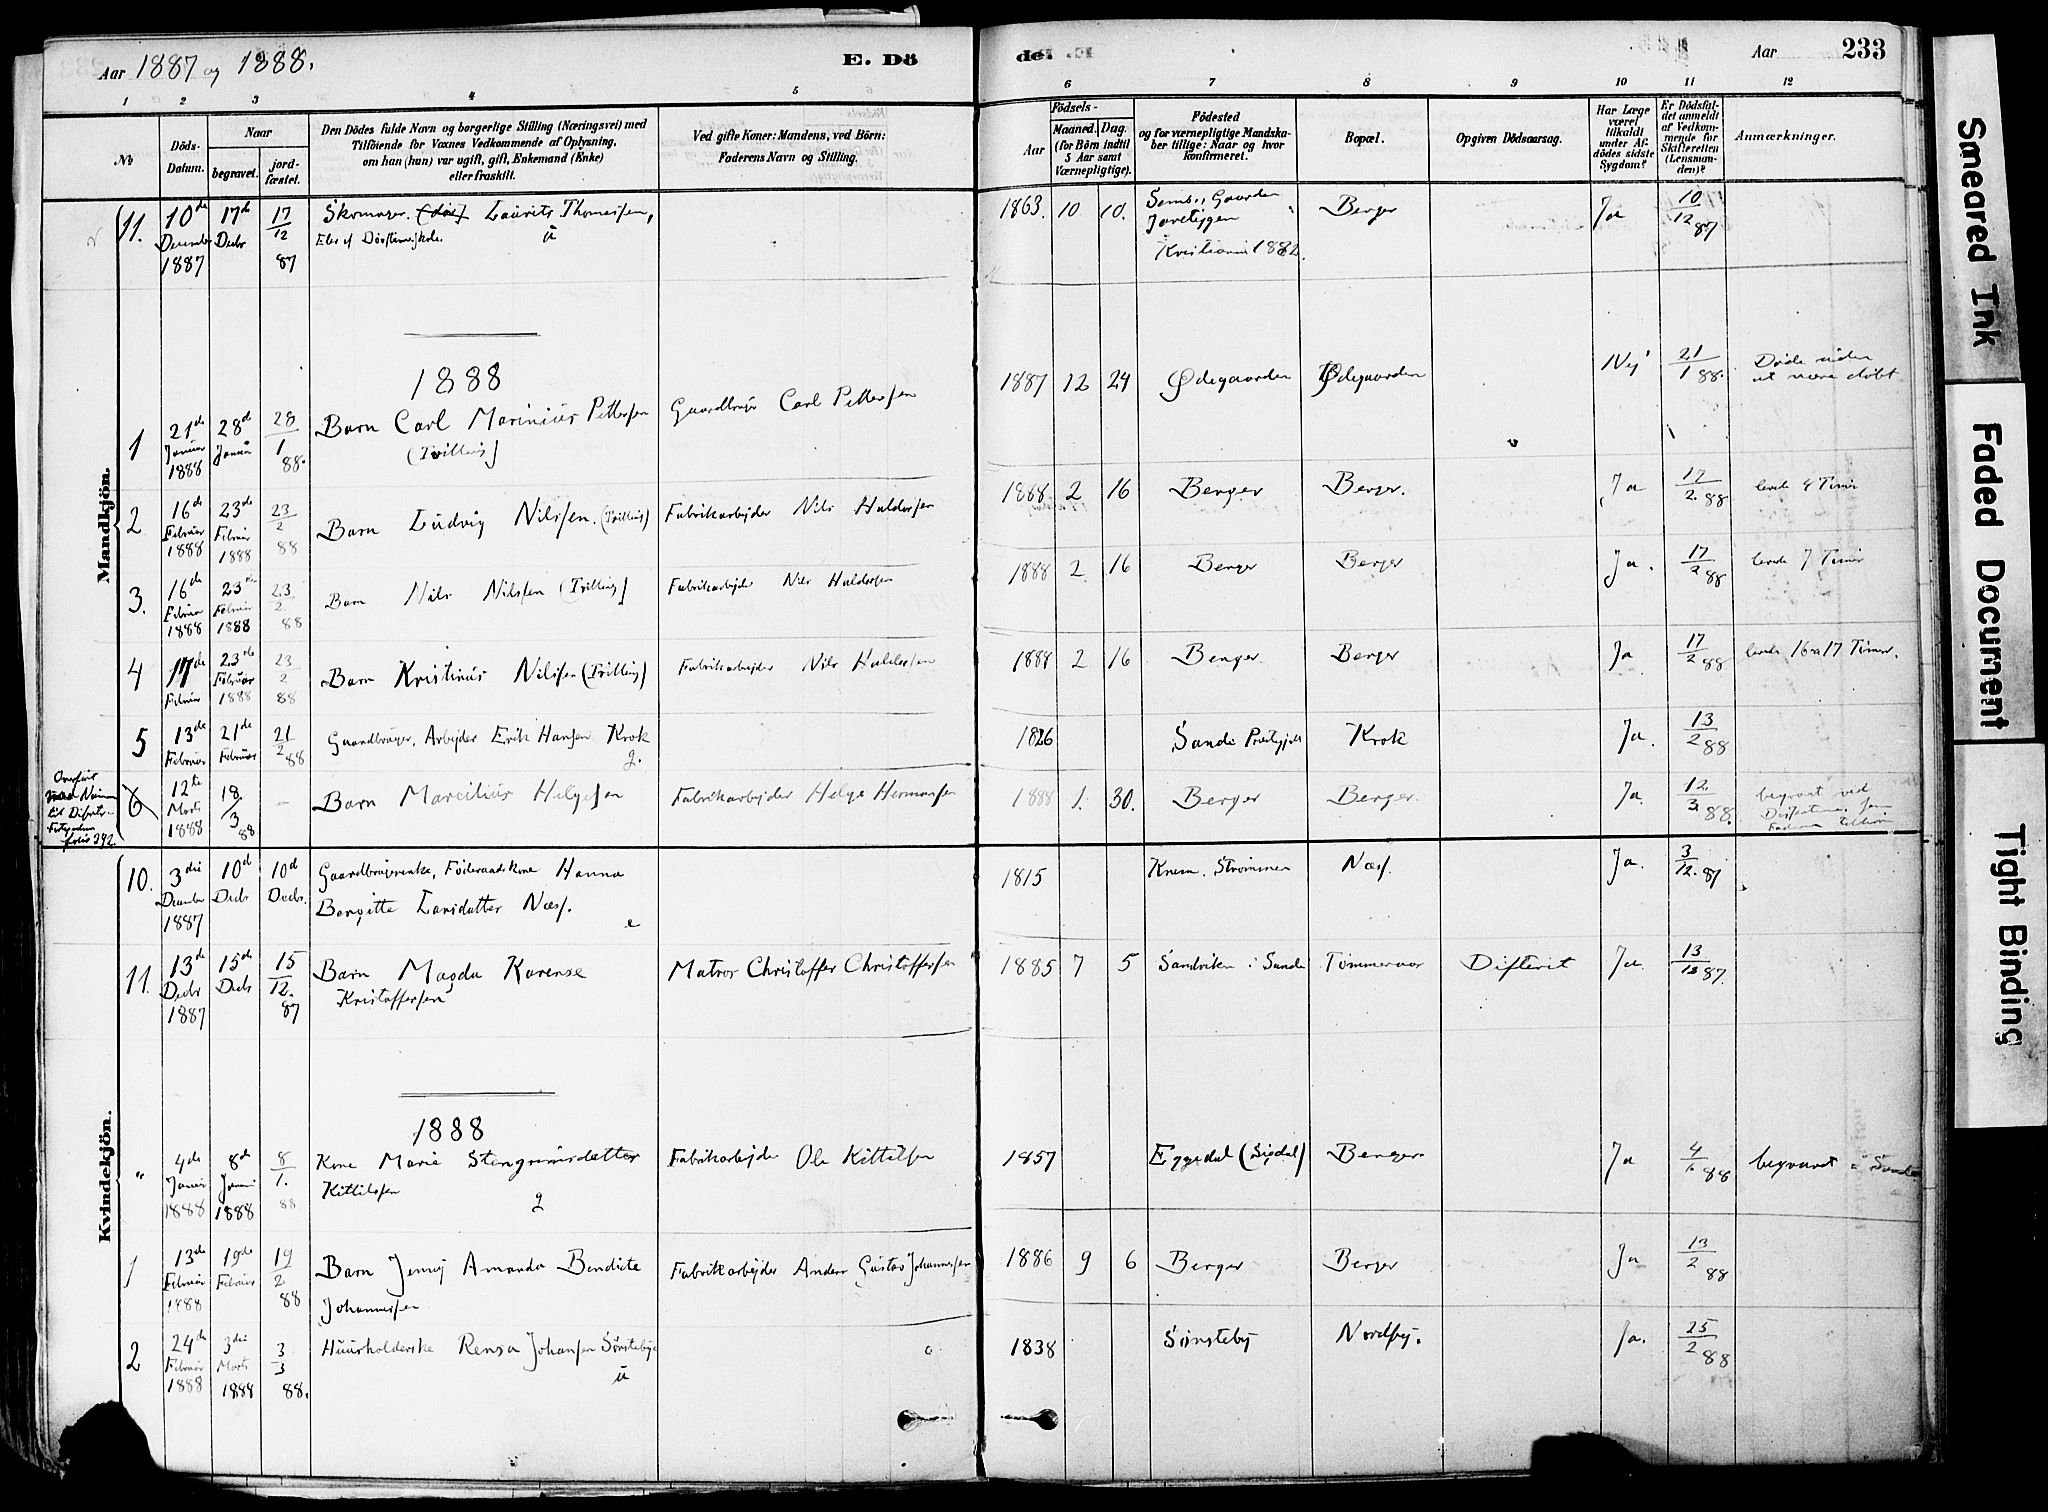 Aar 1887 og 1888.
E. Dö
de.
Aar
233
1 2 3 4 5 6 7 8 9 10 11 12
No
Döds-Datum.
Naar
begravet.
jord-fæstet.
Den Dödes fulde Navn og borgerlige Stilling (Næringsvei) med
Tilföiende for Voxnes Vedkommende af Oplysning,
om han (hun) var ugift, gift, Enkemand (Enke)
eller fraskilt.
Ved gifte Koner: Mandens, ved Börn:
Faderens Navn og Stilling.
Födsels-
Aar
Maaned. Dag.
(for Börn indtil
5 Aar samt
Værnepligtige).
Födested
og for værnepligtige Mandska-
ber tillige: Naar og hvor
konfirmeret.
Bopæl.
Opgiven Dödsaarsag.
Har Læge
været
tilkaldt
under Af-
dödes sidste
Sygdom?
Er Dödsfal-
det anmeldt
af Vedkom-
mende for
Skifteretten
(Lensman-
den)?
Anmærkninger.
Mandkjön.
11. 10de December 1887 17de Decbr 17/12 87 Skomager. Laurits Thomessen, u 1863. 10 10. Kristiania 1882. Berger Ja 10/12 87
1888
1 21de Januar 1888 28de Januar 28/1 88. Barn Carl Marinius Pettersen (Tvilling) Gaardbruger Carl Pettersen 1887 12 24 Ødegaarden Ødegaarden Nej 21/1 88. Døde uden at være døbt
2 16de Februar 1888 23de Februar 1888 23/2 88 Barn Ludvig Nilssen. (Trilling) Fabrikarbejder Nils Haldorsen 1888. 2 16 Berger Berger. Ja 17/2. 88 levede 4 Timer
3. 16de Februar 1888 23de Februar 1888 23/2 88 Barn Nils Nilssen (Trilling) Fabrikarbejder Nils Haldorsen 1888 2. 16 Berger Berger Ja. 17/2 88 levede 7 Timer
4 17de Februar 23de Februar 1888 23/2 88 Barn Kristinus Nilssen (Trilling) Fabrikarbejder Nils Haldorsen 1888 2 16 Berger Berger Ja 17/2 88 levede 16 a 17 Timer.
5 13de Februar 21de Februar 21/2 88 Gaardbruger, Arbejder Erik Hansen Krok g. 1826 Sande Præstegjeld Krok Ja. 13/2 88
folio 292.
6 12te Marts 1888 18/3 88 – Barn Marcelius Helgesen Fabrikarbejder Helge Hermansen 1888 1. 30. Berger Berger. Ja. 12/3 88. begravet ved
Kvindekjön.
10. 3die December 1887 10de Decbr 10de Decbr. Gaardbrugerenke, Føderaadskone Hanna Bergitte Larsdatter Næss. e 1815 Knem. Strømmen Næss. Ja. 3/12. 87
11. 13de Decbr 1887 15de Decbr 15/12. 87 Barn Magda Karense Kristoffersen Matros Christoffer Christoffersen 1885 7 5 Sandviken i Sande Tømmeraas Difterit Ja 13/12 87.
1888
" 4de Januar 1888 8de Januar 1888 8/1. 88 Kone Marie Stengrimsdatter Kittilsen g Fabrikarbejder Ole Kittilsen 1857 Eggedal (Sigdal) Berger Ja 4/1 88 begravet i Sande
1 13de Februar 1888 19de Februar 19/2 88 Barn Jenny Amanda Bendicte Johannessen Fabrikarbejder Anders Gustav Johannessen 1886 9 6 Berger Berger Ja 13/2 88
2 24de Februar 1888 3die Marts 1888 3/3 88. Huusholderske Rensa Johansen Sønsteby u 1838 Sønsteby Nordby. Ja. 25/2 88
Smeared Ink
Faded Document
Tight Binding